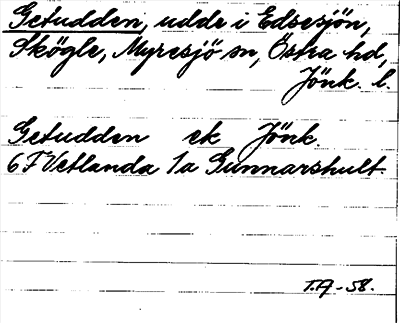 Getudden, udde i Edsesjön,
Skögle, Myresjö sn, Östra hd,
Jönk. l.
Getudden ek Jönk.
6 F Vetlanda 1a Gunnarshult.
T.A-58.